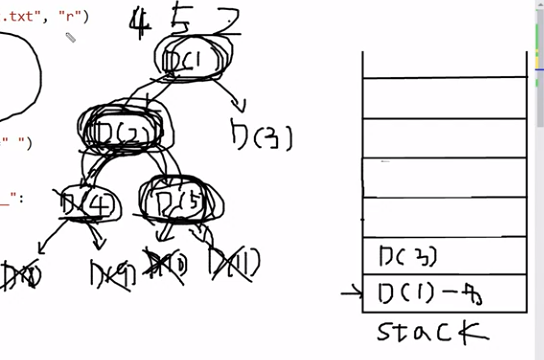 .txt", "r")
4 5 2
D(1)
" ")
D(2)
D(3)
__":
D(4)
D(5)
D(8)
D(9)
D(11)
D(3)
D(1)
stack